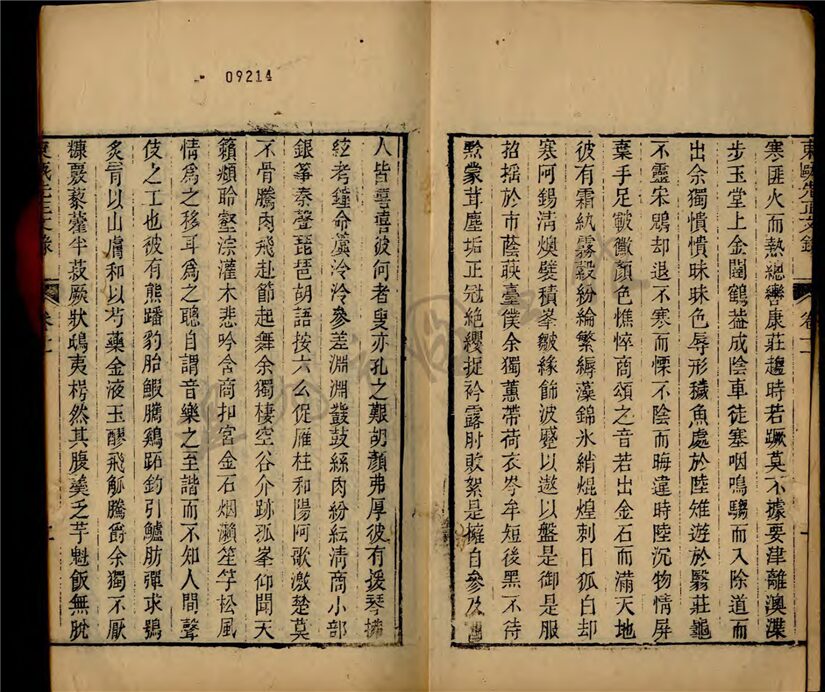 09214
東甌先正文錄
卷十二
寒匪火而熱總轡康莊趨時若蹶莫不據要津離澳渫
步玉堂上金閨鶴蓋成陰車徒塞咽鳴騶而入除道而
出余獨憒憒昧昧色辱形穢魚處於陸雉遊於翳莊龜
不靈宋鷁却退不寒而慄不陰而晦違時陸沉物情屏
棄手足皸黴顏色憔悴商頌之音若出金石而滿天地
彼有霜紈霧縠紛綸繁縟藻錦氷綃焜煌刺日狐白却
寒阿錫清燠襞積峯皺緣飾波蹙以遨以盤是御是服
招搖於市蔭藾臺僕余獨蕙帶荷衣岑牟短後黑不待
黔蒙茸塵垢正冠絶纓捉衿露肘敗絮是擁自參及
人皆譆譆彼何者叟亦孔之艱胡顏弗厚彼有援琴擁
絃考鐘命簴泠泠參差淵淵鼗鼓絲肉紛紜清商小部
銀箏秦聲琵琶胡語按六么促雁柱和陽阿歌激楚莫
不骨騰肉飛赴節起舞余獨棲空谷介跡孤峯仰聞天
籟頫聆壑淙灌木悲吟含商扣宮金石烟瀨笙竽松風
情爲之移耳爲之聰自謂音樂之至諧而不知人間聲
伎之工也彼有熊蹯豹胎鰕臇鷄跖釣引鱸肪彈求鴞
炙肴以山膚和以芍藥金液玉醪飛觚騰爵余獨不厭
糠覈藜藿半菽厥狀鴟夷枵然其腹羹乏芋魁飯無脫
東甌先正文錄
卷十二